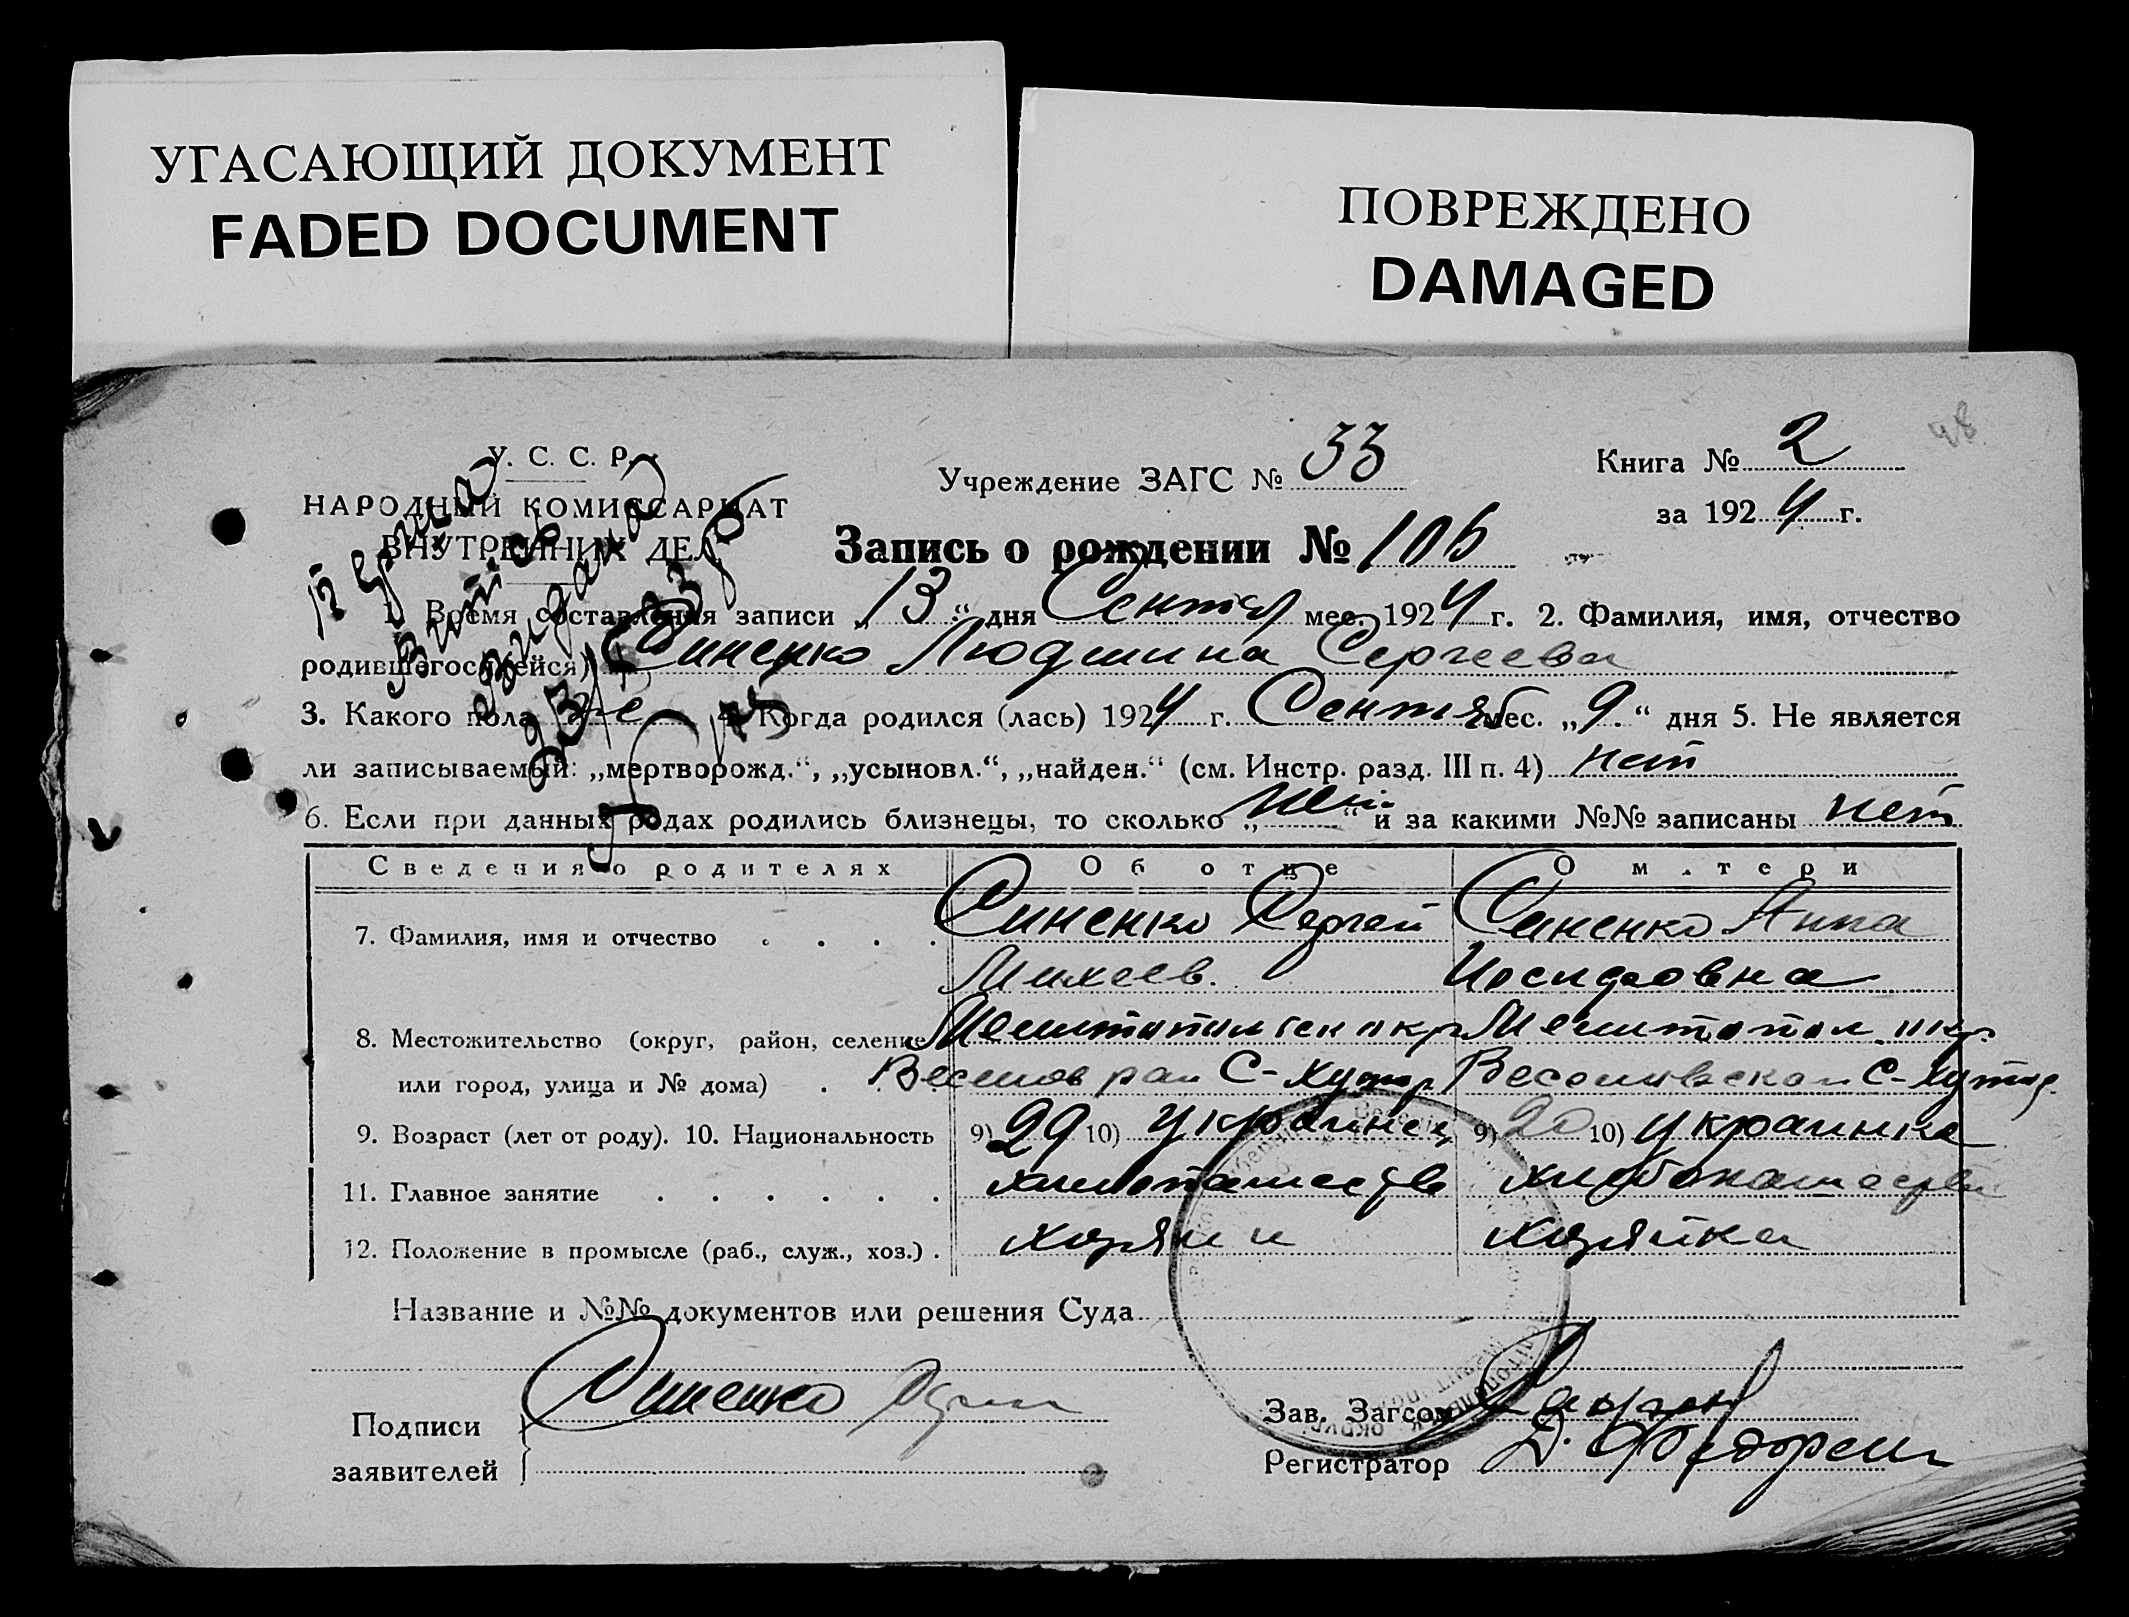 УГАСАЮЩИЙ ДОКУМЕНТ
FADED DOCUMENT
ПОВРЕЖДЕНО
DAMAGED
48
У. С. С. Р.
НАРОДНЫЙ КОМИССАРИАТ
ВНУТРЕННИХ ДЕЛ
Учреждение ЗАГС № 33
Книга № 2
за 1924 г.
Запись о рождении № 106
1. Время составления записи „13“ дня Сентяб мес. 1924 г. 2. Фамилия, имя, отчество
родившегося(ейся) Синенко Людмила Сергеева
3. Какого пола же 4. Когда родился (лась) 1924 г. Сентяб мес. „9.“ дня 5. Не является
ли записываемый: „мертворожд.“, „усыновл.“, „найден.“ (см. Инстр. разд. III п. 4) нет
6. Если при данных родах родились близнецы, то сколько „нет“ и за какими №№ записаны нет
Сведения о родителях Об отце О матери
7. Фамилия, имя и отчество . . . . Синенко Сергей Синенко Анна
Михеев. Иосифовна
8. Местожительство (округ, район, селение Мелитопольск окр Мелитопол окр.
или город, улица и № дома) . Веселов рай С-Хутор Веселовском С-Хутор.
9. Возраст (лет от роду). 10. Национальность 9) 29 10) украинец 9) 20 10) украинка
11. Главное занятие . . . . . .
12. Положение в промысле (раб., служ., хоз.) . хозяин хозяйка
Название и №№ документов или решения Суда
Подписи
заявителей
Синенко
Зав. Загсом
Регистратор